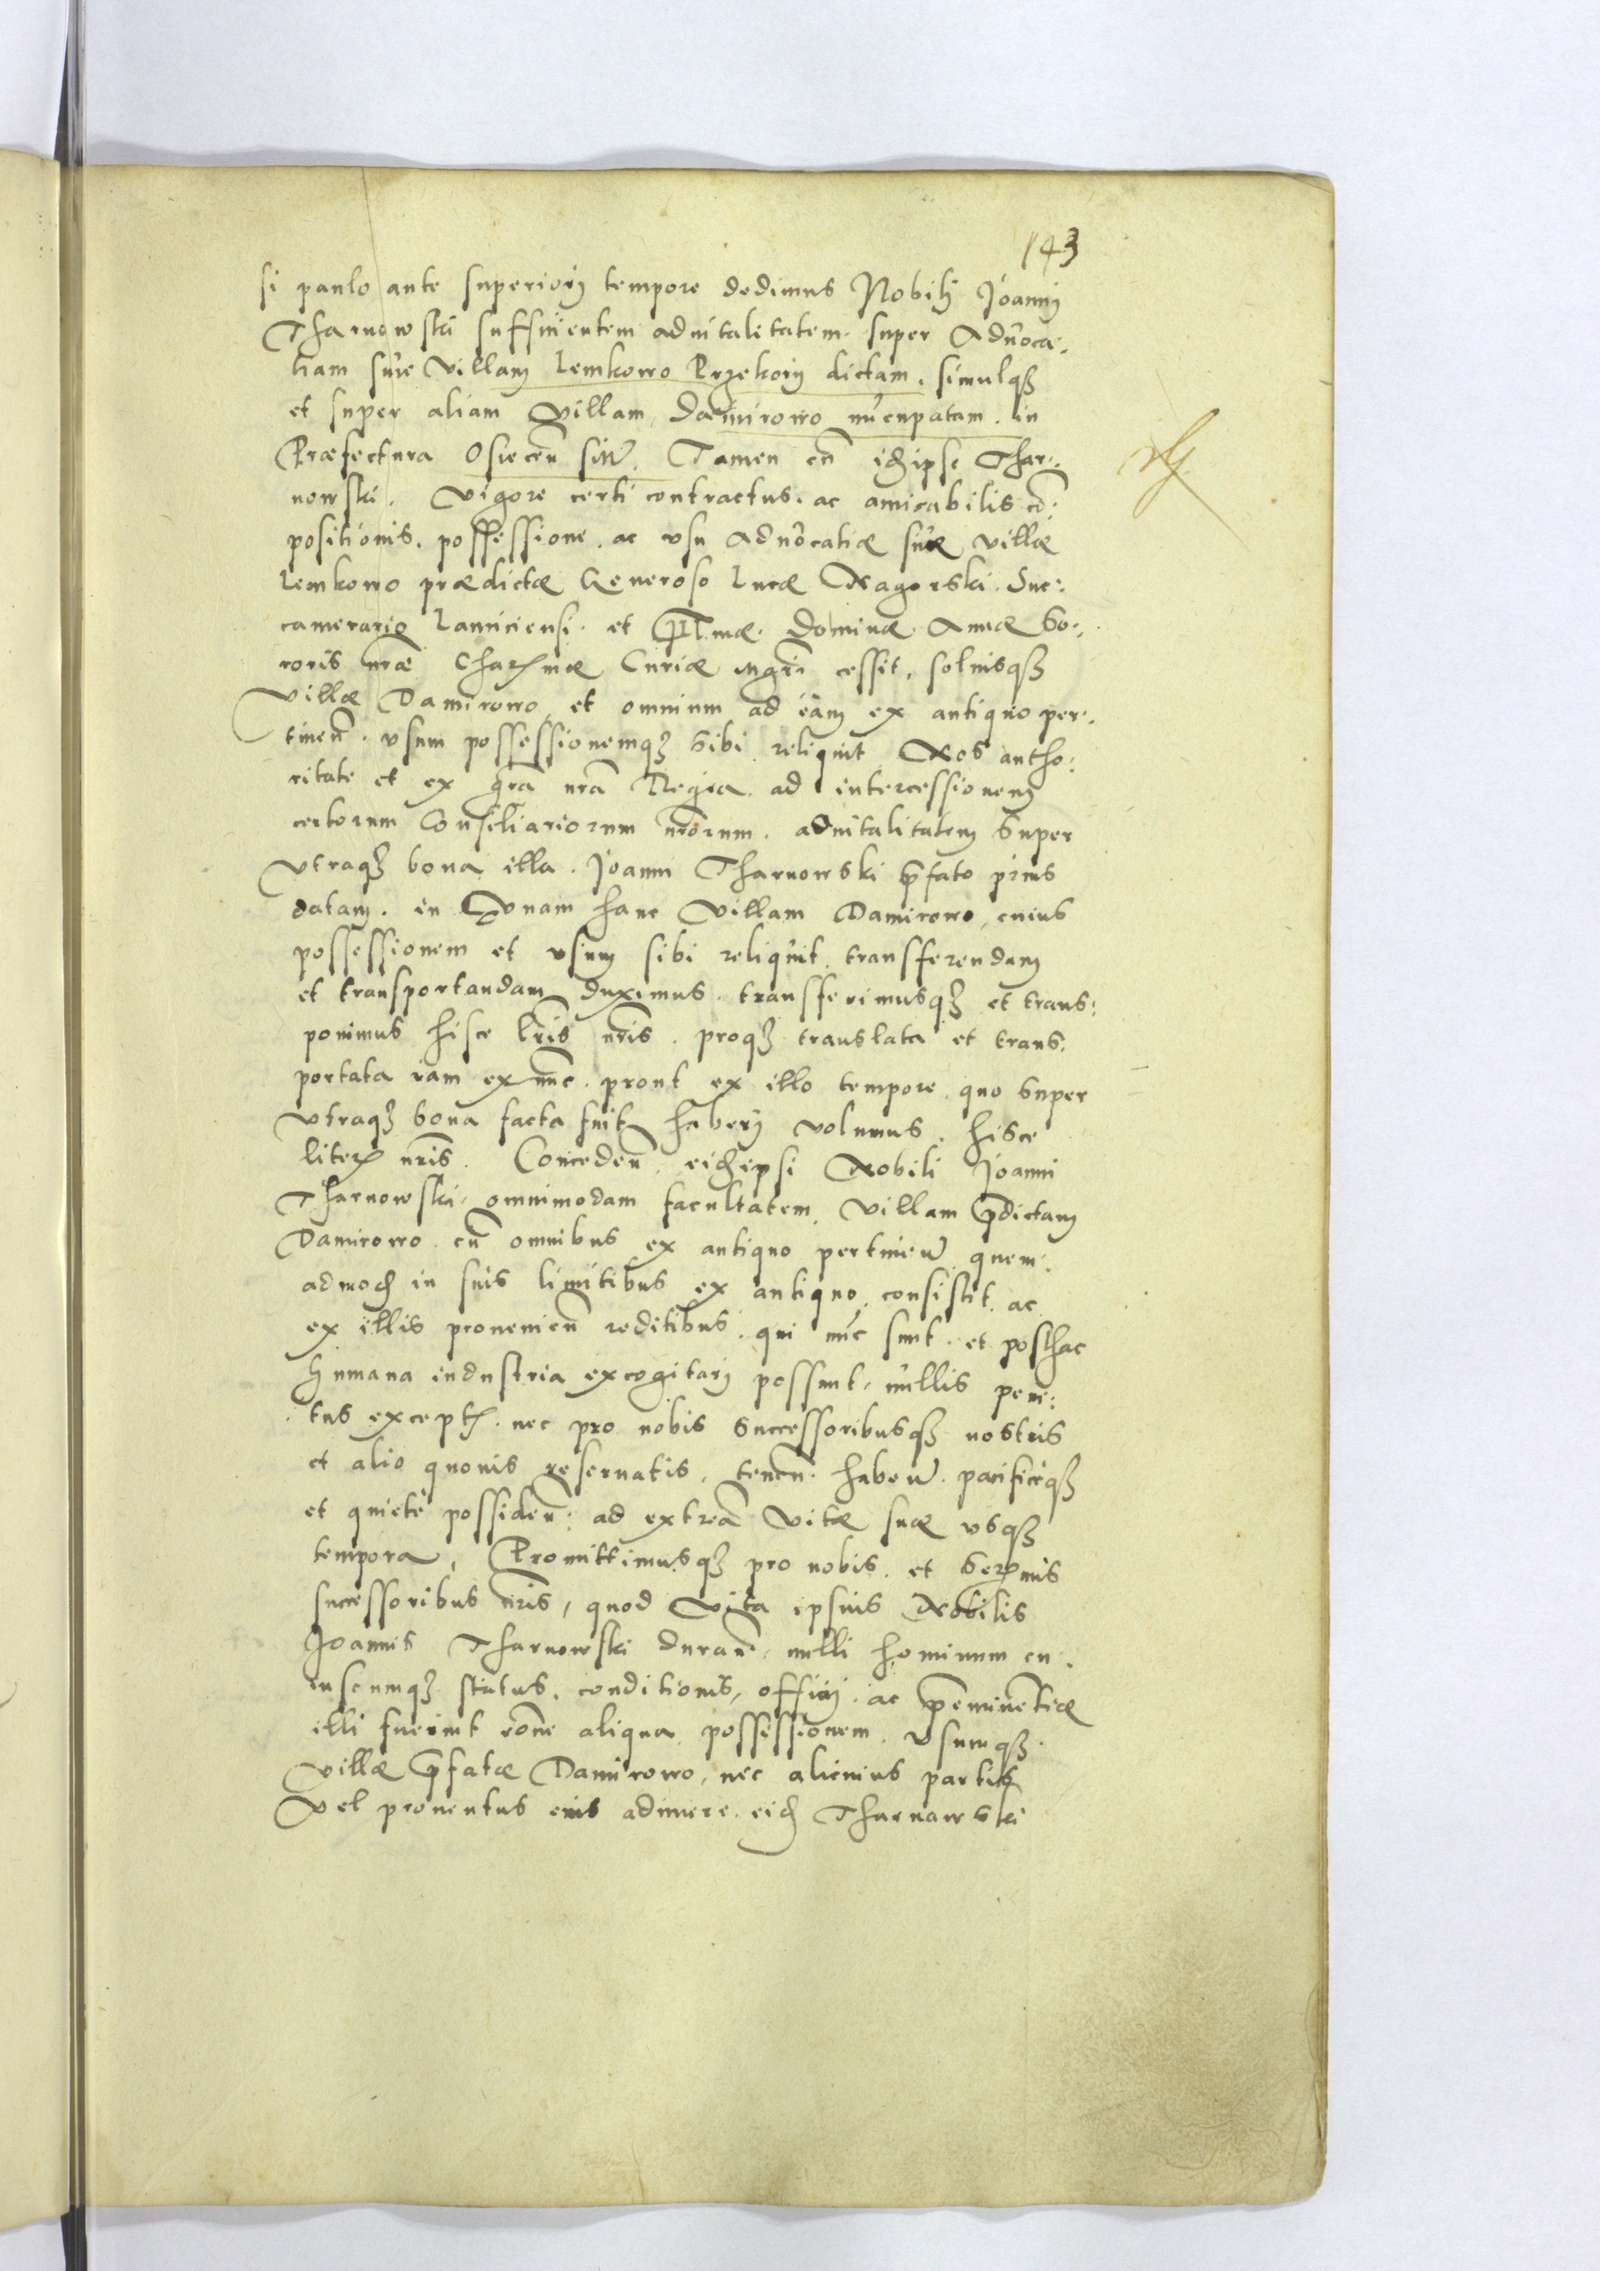 143
si paulo ante superiorj tempore dedimus Nobilj Joannj
Tharnowski sufficientem aduitalitatem super Aduoca„
tiam siue Villam Lemkowo Przekorÿ dictam, simulq3
et super aliam Villam Damirowo nūcupatam. in
Præfectura Osiecen̄ sitā. Tamen cū idipse Thar„
nowski. Vigore certi contractus. ac amicabilis cō:
positionis. possessione. ac vsu Aduocatiæ siue villæ
Lemkowo prædictæ Generoso Lucæ Nagorski. Suc:
camerario Lanciciensi. et Dominæ Annæ So„
roris nr̄æ Charmæ Curiæ mgrī cessit, solusq3
Villæ Damirowo et omnium ad eam ex antiquo per„
tinen̄. vsum possessionemq3 sibi reliquit Nos autho:
ritate et ex gr̄a nr̄a Regia. ad intercessionem
certorum Consiliariorum nr̄orum. aduitalitatem super
Vtraq3 bona illa. Joanni Tharnowski p̄fato prius
datam. in Vnam hanc Villam Damirowo, cuius
possessionem et vsum sibi reliquit, transferendam
et transportandam duximus. transferimusq3 et trans:
ponimus hisce lr̄is nr̄is. proq3 translata et trans„
portata iam ex nūc. prout ex illo tempore quo super
Vtraq3 bona facta fuit haberj volumus. hisce
literis nr̄is. Conceden̄. eidipsi Nobili Joanni
Tharnowski. omnimodam facultatem, Villam p̄dictam
Damirowo cū omnibus ex antiquo pertinen̄. quem:
admod̄ in suis limitibus ex antiquo, consistit, ac
ex illis prouenien̄ reditibus. qui nūc sunt. et posthac
humana industria excogitarj possunt, nullis peni:
tus exceptis. nec pro nobis successoribusq3 nostris
et alio quouis reseruatis, tenen̄. haben̄. pacificeq3
et quiete possiden̄: ad extrema Vitæ suæ vsq3
tempora, Promittimusq3 pro nobis. et Sermis
successoribus nr̄is, quod Vita ipsius Nobilis
Joannis Tharnowski duran̄. nulli hominum cu„
iuscumq3 status, conditionis, officij. ac p̄eminentiæ
illi fuerint rōne aliqua possessionem. Vsumq3.
Villæ p̄fatæ Damirowo, nec alicuius partis
Vel prouentus eius adimere eid̄ Tharnawski